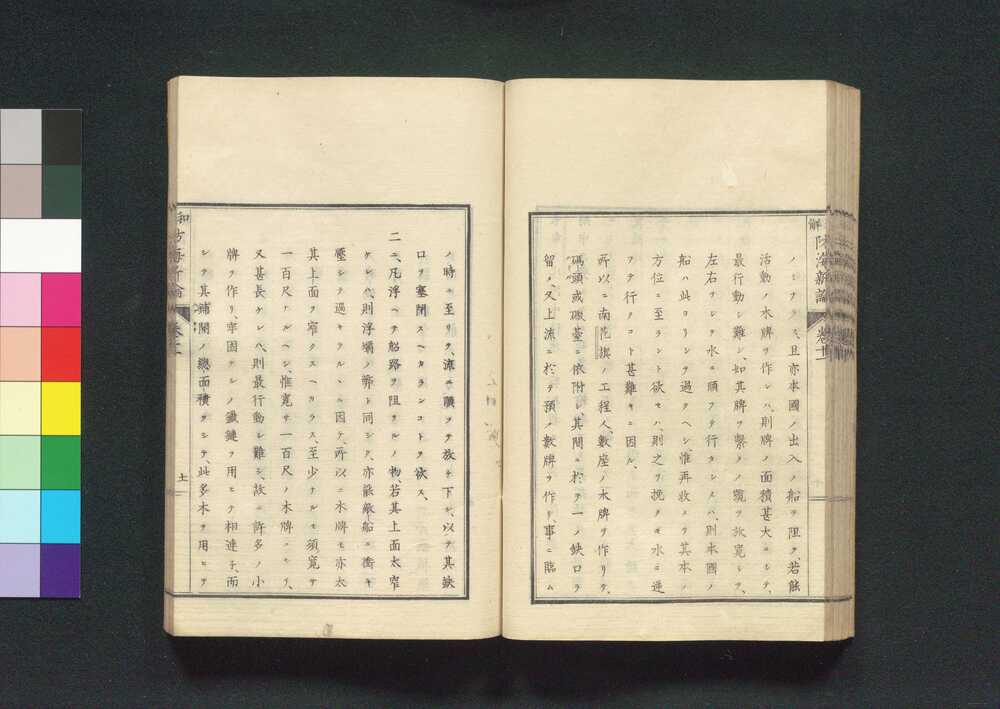 ノミナラス、且亦本國ノ出入ノ船ヲ阻ク、若能
活動ノ木牌ヲ作レハ、則牌ノ面積甚大ニシテ、
最行動シ難シ、如其牌ヲ繋クノ纜ヲ放寛シテ、
左右ナレク水ニ順フテ行カシメハ、則本國ノ
船ハ此ヨリシテ過クヘシ、惟再收メテ其本ノ
方位ニ至ラント欲セハ、則之ヲ挽クモ水ニ逆
フテ行クコト甚難キニ因ル、
所以ニ南陀撰ノ工程人、數座ノ木牌ヲ作リテ、
碼頭或礟臺ニ依附シ其間ニ於テ一ノ缺口ヲ
留メ、又上流ニ於テ預メ數牌ヲ作リ、事ニ臨ム
ノ時ニ至リテ、流ニ順フテ放チ下シ、以テ其缺
口ヲ塞閉スヘカランコトヲ欲ス、
二、凡浮ヘテ船路ヲ阻クルノ物、若其上面太窄
ケレハ、則浮壩ノ弊ト同シク、亦能敵船ニ衝キ
壓シテ過キラルヽニ因テ、所以ニ木牌モ亦太
其上面ヲ窄クスヘカラス、至少ナルモ須寛サ
一百尺ナルヘシ、惟寛サ一百尺ノ木牌ニシテ、
又甚長ケレハ、則最行動シ難シ、故ニ許多ノ小
牌ヲ作リ、牢固ナルノ鐵鏈ヲ用ヒテ相連子、而
シテ其補閉ノ總面積ヲシテ此多木ヲ用ヒテ
土